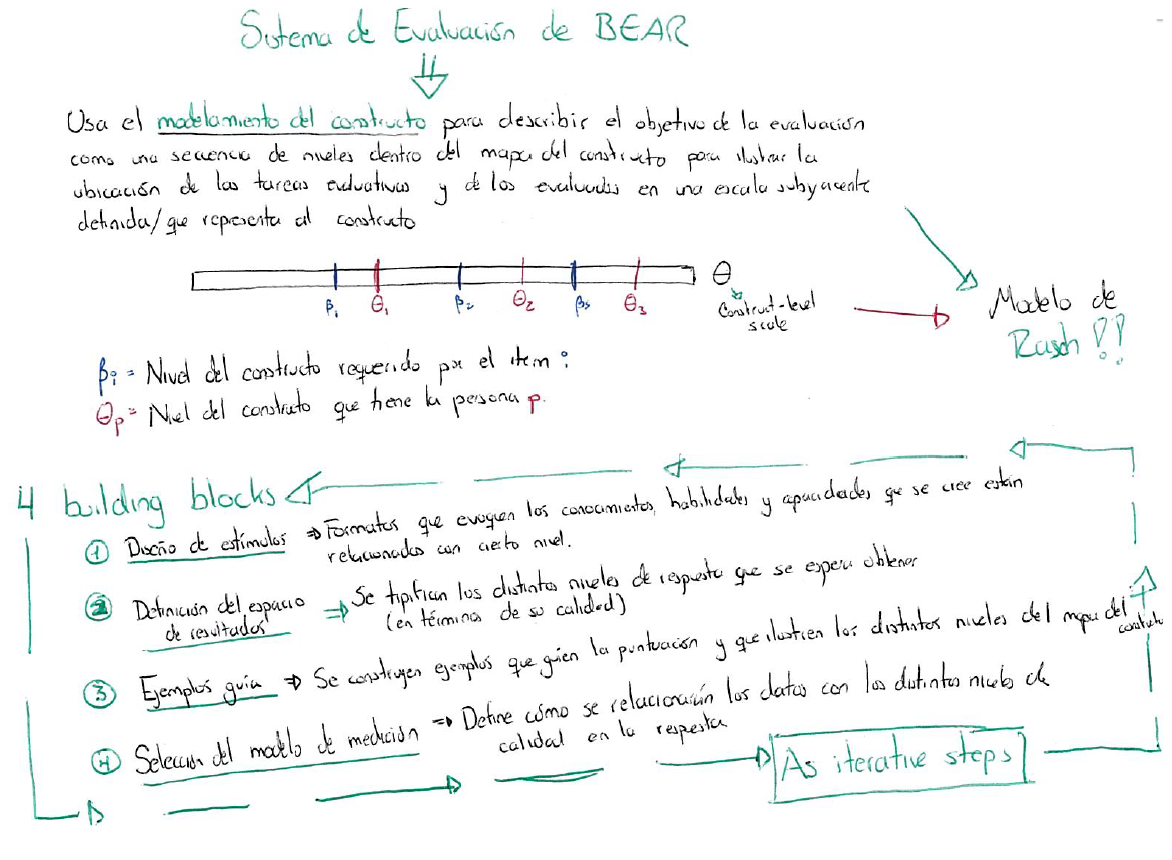 Sistema de Evaluación de BEAR
Usa el modelamiento del constructo para describir el objetivo de la evaluación
como una secuencia de niveles dentro del mapa del constructo para ilustrar la
ubicación de las tareas evaluativas y de los evaluados en una escala subyacente
definida/que representa al constructo
β₁ θ₁ β₂ θ₂ β₃ θ₃
θ
Construct-level
scale
Modelo de
Rasch !!
βi = Nivel del constructo requerido por el item i
θp = Nivel del constructo que tiene la persona p.
4 building blocks
① Diseño de estímulos ⇒ Formatos que evoquen los conocimientos, habilidades y capacidades que se cree están
relacionados con cierto nivel.
② Definición del espacio ⇒ Se tipifican los distintos niveles de respuesta que se espera obtener
de resultados (en términos de su calidad)
③ Ejemplos guía ⇒ Se construyen ejemplos que guíen la puntuación y que ilustren los distintos niveles del mapa del
constructo
④ Selección del modelo de medición ⇒ Define cómo se relacionarán los datos con los distintos niveles de
calidad en la respuesta
As iterative steps